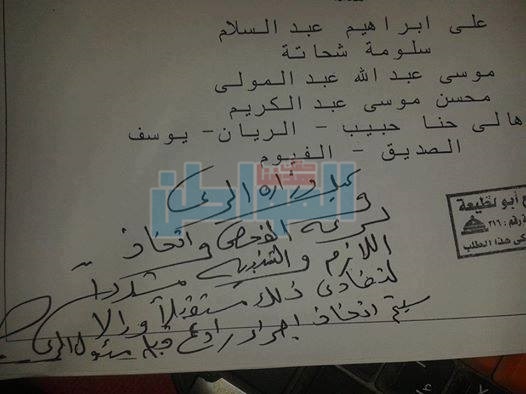 على ابراهيم عبد السلام
سلومة شحاتة
موسى عبد الله عبد المولى
محسن موسى عبد الكريم
هالى حنا حبيب - الريان - يوسف
الصديق - الفيوم
حق
المواطن
وزارة الرى
سرعة الفحص واتخاذ
اللازم والتنبيه مشدداً
لتفادى ذلك مستقبلاً والا
سيتم اتخاذ اجراء رادع قبل مسئول الرى
ع أبو لطيعة
رقم: ٢١٦
هذا الطلب